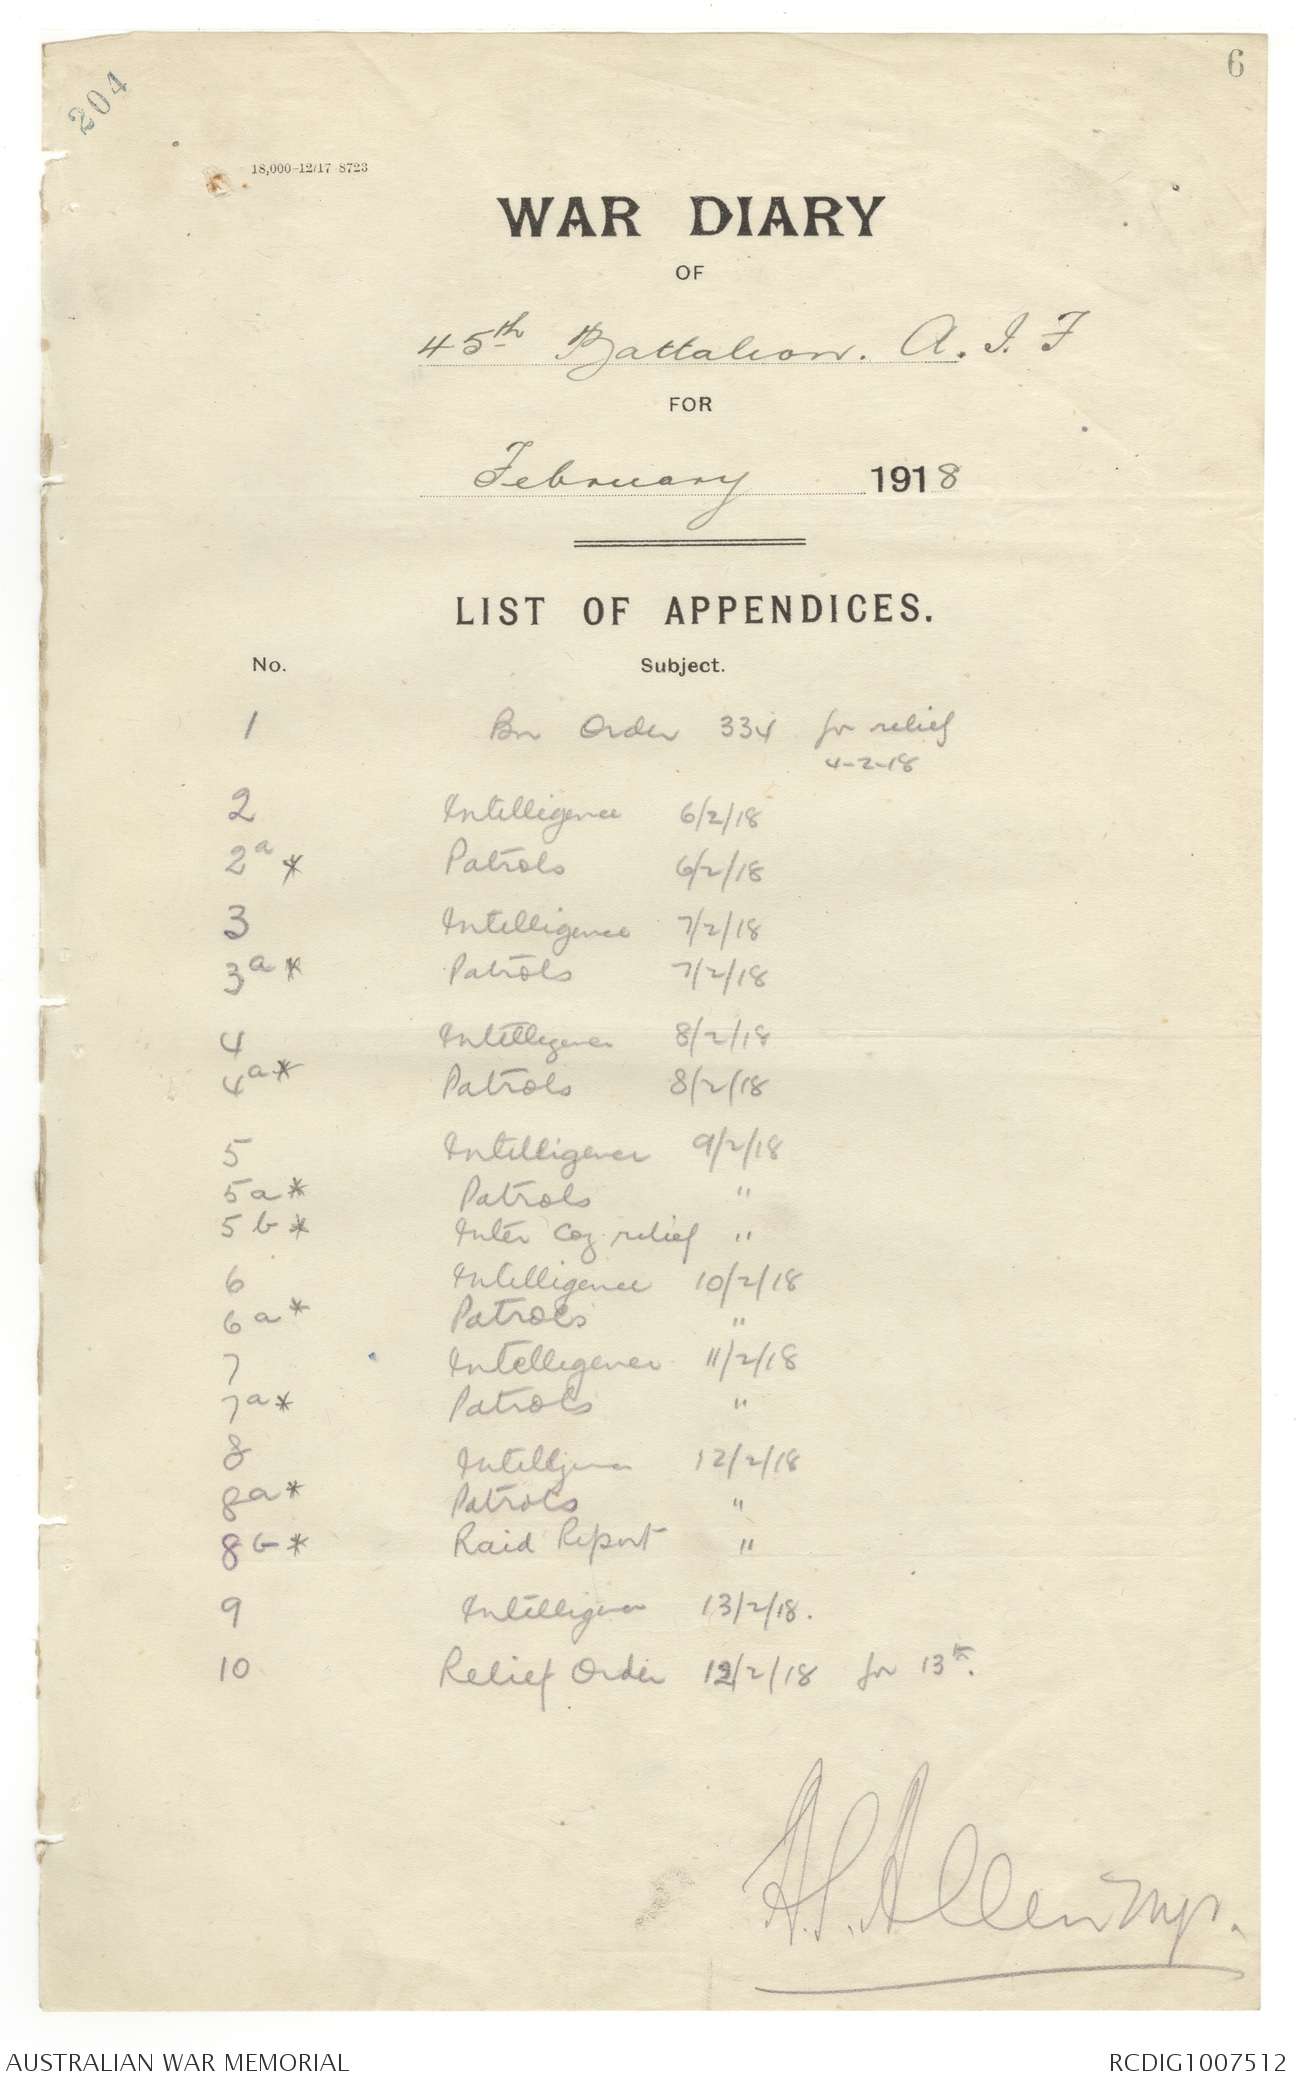 204
6
18,000-12/17 8723
WAR DIARY
OF
45th Battalion. A. I. F
FOR
February 1918
LIST OF APPENDICES.
No. Subject.
1 Bn Order 334 for relief
4-2-18
2 Intelligence 6/2/18
2a * Patrols 6/2/18
3 Intelligence 7/2/18
3a * Patrols 7/2/18
4 Intelligence 8/2/18
4a * Patrols 8/2/18
5 Intelligence 9/2/18
5a * Patrols "
5b * Inter Coy relief "
6 Intelligence 10/2/18
6a * Patrols "
7 Intelligence 11/2/18
7a * Patrols "
8 Intelligence 12/2/18
8a * Patrols "
8b * Raid Report "
9 Intelligence 13/2/18.
10 Relief Order 12/2/18 for 13th.
Allen Mjr.
AUSTRALIAN WAR MEMORIAL
RCDIG1007512